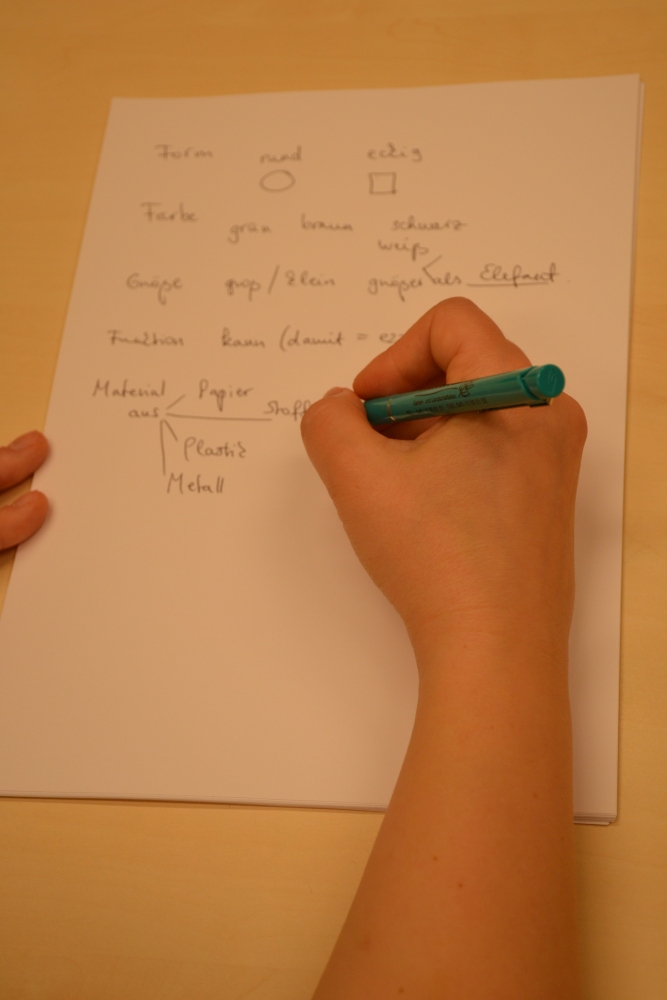 Form rund eckig
Farbe grün braun schwarz
weiß
Größe groß / klein größer als Elefant
Funktion kann (damit =
Material Papier
aus Stoff
Plastik
Metall